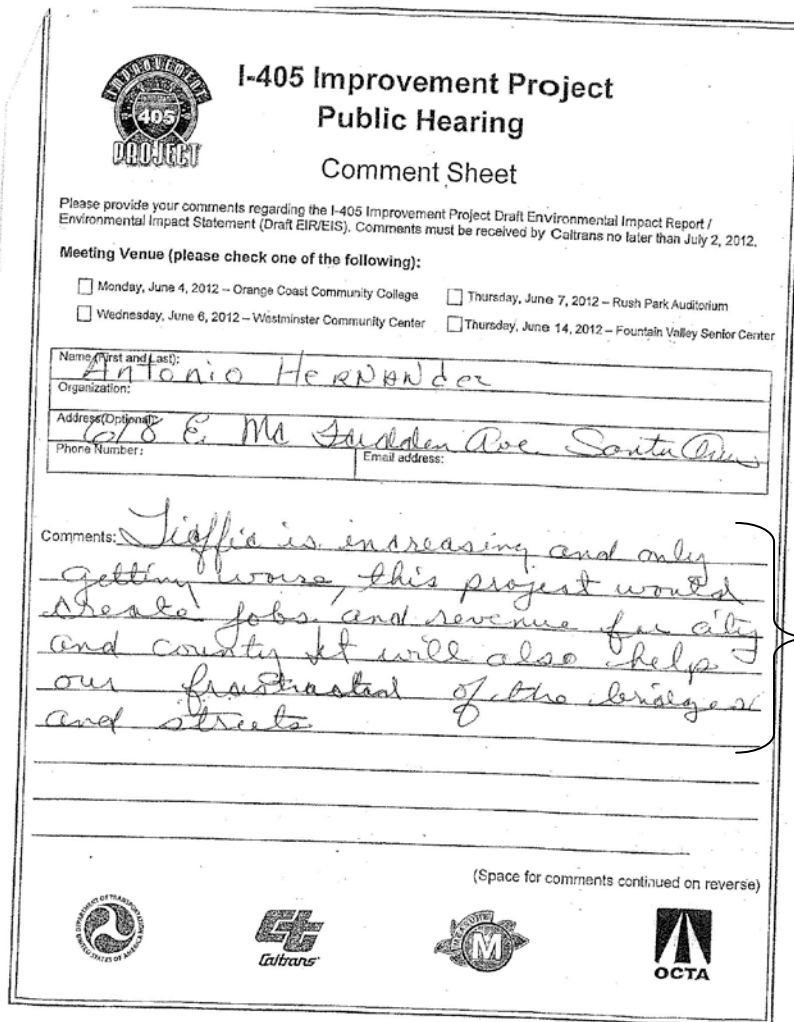 IMPROVEMENT
405
PROJECT
I-405 Improvement Project
Public Hearing
Comment Sheet
Please provide your comments regarding the I-405 Improvement Project Draft Environmental Impact Report /
Environmental Impact Statement (Draft EIR/EIS). Comments must be received by Caltrans no later than July 2, 2012.
Meeting Venue (please check one of the following):
Monday, June 4, 2012 – Orange Coast Community College
Thursday, June 7, 2012 – Rush Park Auditorium
Wednesday, June 6, 2012 – Westminster Community Center
Thursday, June 14, 2012 – Fountain Valley Senior Center
Name (First and Last): Antonio HerNANdez
Organization:
Address(Optional): 618 E. Mc Fadden Ave. Santa Ana
Phone Number: Email address:
Comments: Traffic is increasing and only
getting worse, this project would
create jobs and revenue for city
and county It will also help
our frustrated of the bridges
and streets
(Space for comments continued on reverse)
DEPARTMENT OF TRANSPORTATION
UNITED STATES OF AMERICA
Caltrans
MEASURE
M
OCTA